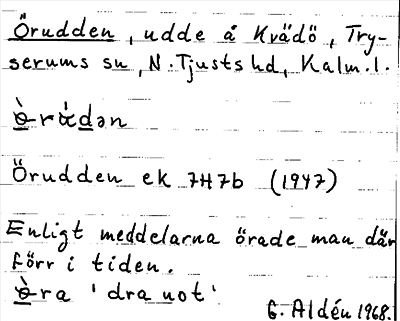 Örudden, udde å Kvädö, Try-
serums sn, N. Tjusts hd, Kalm. l.
Örudden ek 7H7b (1947)
Enligt meddelarna örade man där
förr i tiden.
ö̀ra 'dra not'
G. Aldén 1968.